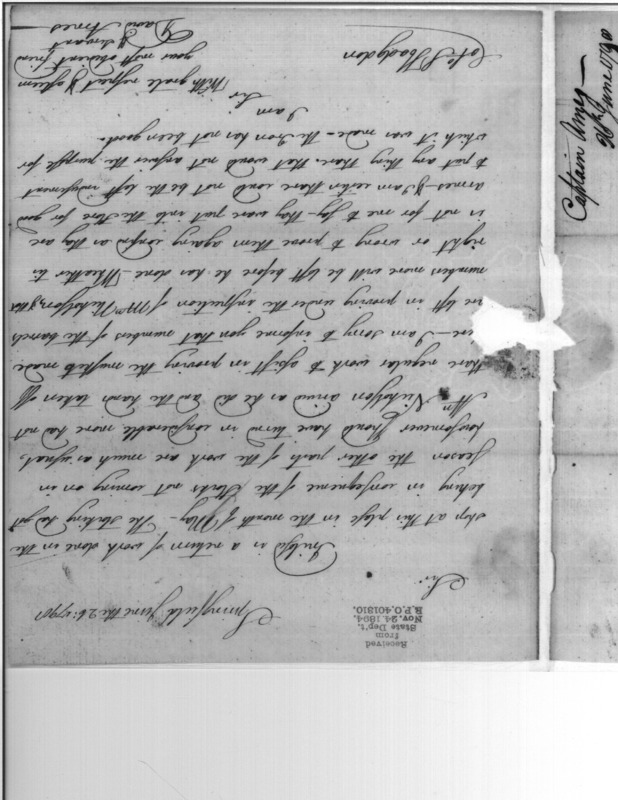 Received
from
State Dep't.
Nov. 24, 1894.
R.P.O. 401810.
Springfield June the 26: 179
Sir.
Inclosd is a return of work done in the
shop at this place in the month of May— The stocking
being in consequence of the Stocks not coming on in
season the other parts of the work are much as usual,
howsomever should have turnd in considerable more had not
Mr. Nicholson arived as he did and the hands taken off
thare regular work to assist in proving the muskets made
here— I am sorry to informe you that numbers of the barrels
are left in proving under the inspection of Mr. Nicholson, & that
numbers more will be left before he has done— Weather tis
right or wrong to prove them againg
is not for me to say they ware put into the Store for good
armes— I am certin thare could not be the left judgement
to put any thing thare that would not answer the purpose for
which it was made— the Iron has not been good—
I am
Sir
With grate respect & esteem
your most obedient friend
& Servant
David Ames
Col. S. Hodgdon
Captain Ames—
26th June 179